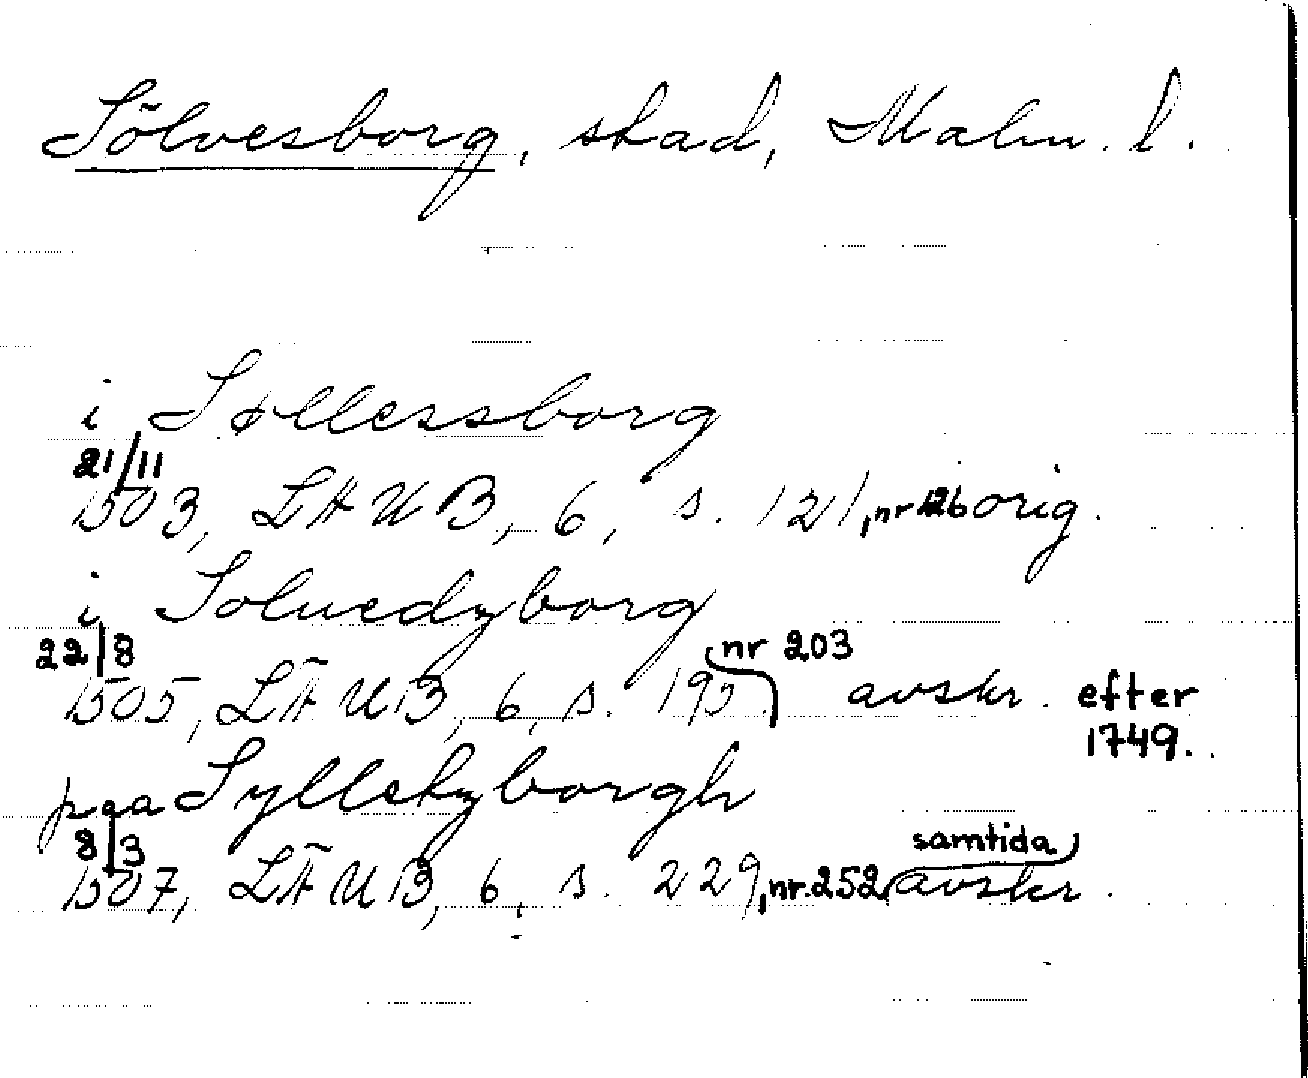 Sölvesborg, stad, Malm. l.
i Søllessborg
21/11
1503, LÄUB, 6, s. 121, nr 126 orig.
i Soluedzborg
22/8
1505, LÄUB, 6, s. 195, nr 203 avskr. efter
1749.
paa Syllefzborgh
8/3
1507, LÄUB, 6, s. 229, nr. 252 samtida avskr.